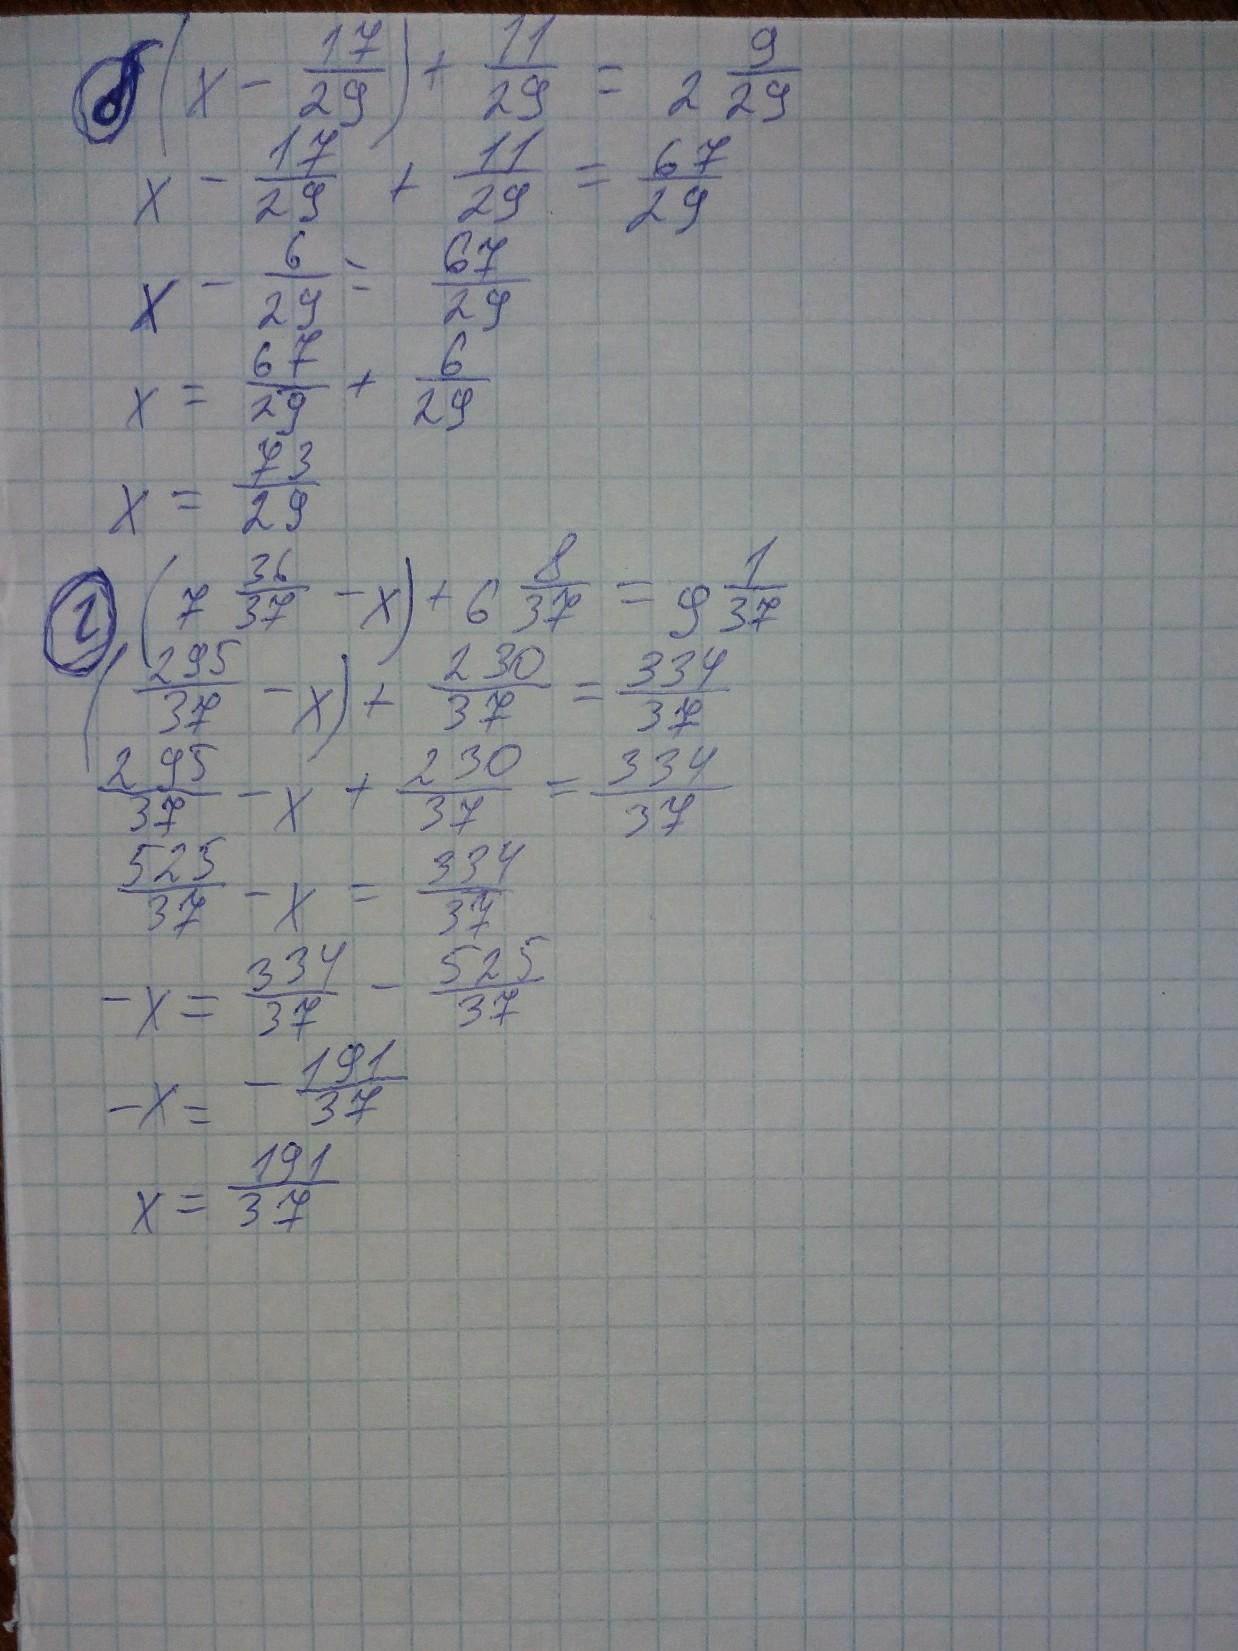 б (x - 17/29) + 11/29 = 2 9/29
x - 17/29 + 11/29 = 67/29
x - 6/29 = 67/29
x = 67/29 + 6/29
x = 73/29
г (7 36/37 - x) + 6 8/37 = 9 1/37
(295/37 - x) + 230/37 = 334/37
295/37 - x + 230/37 = 334/37
525/37 - x = 334/37
-x = 334/37 - 525/37
-x = - 191/37
x = 191/37